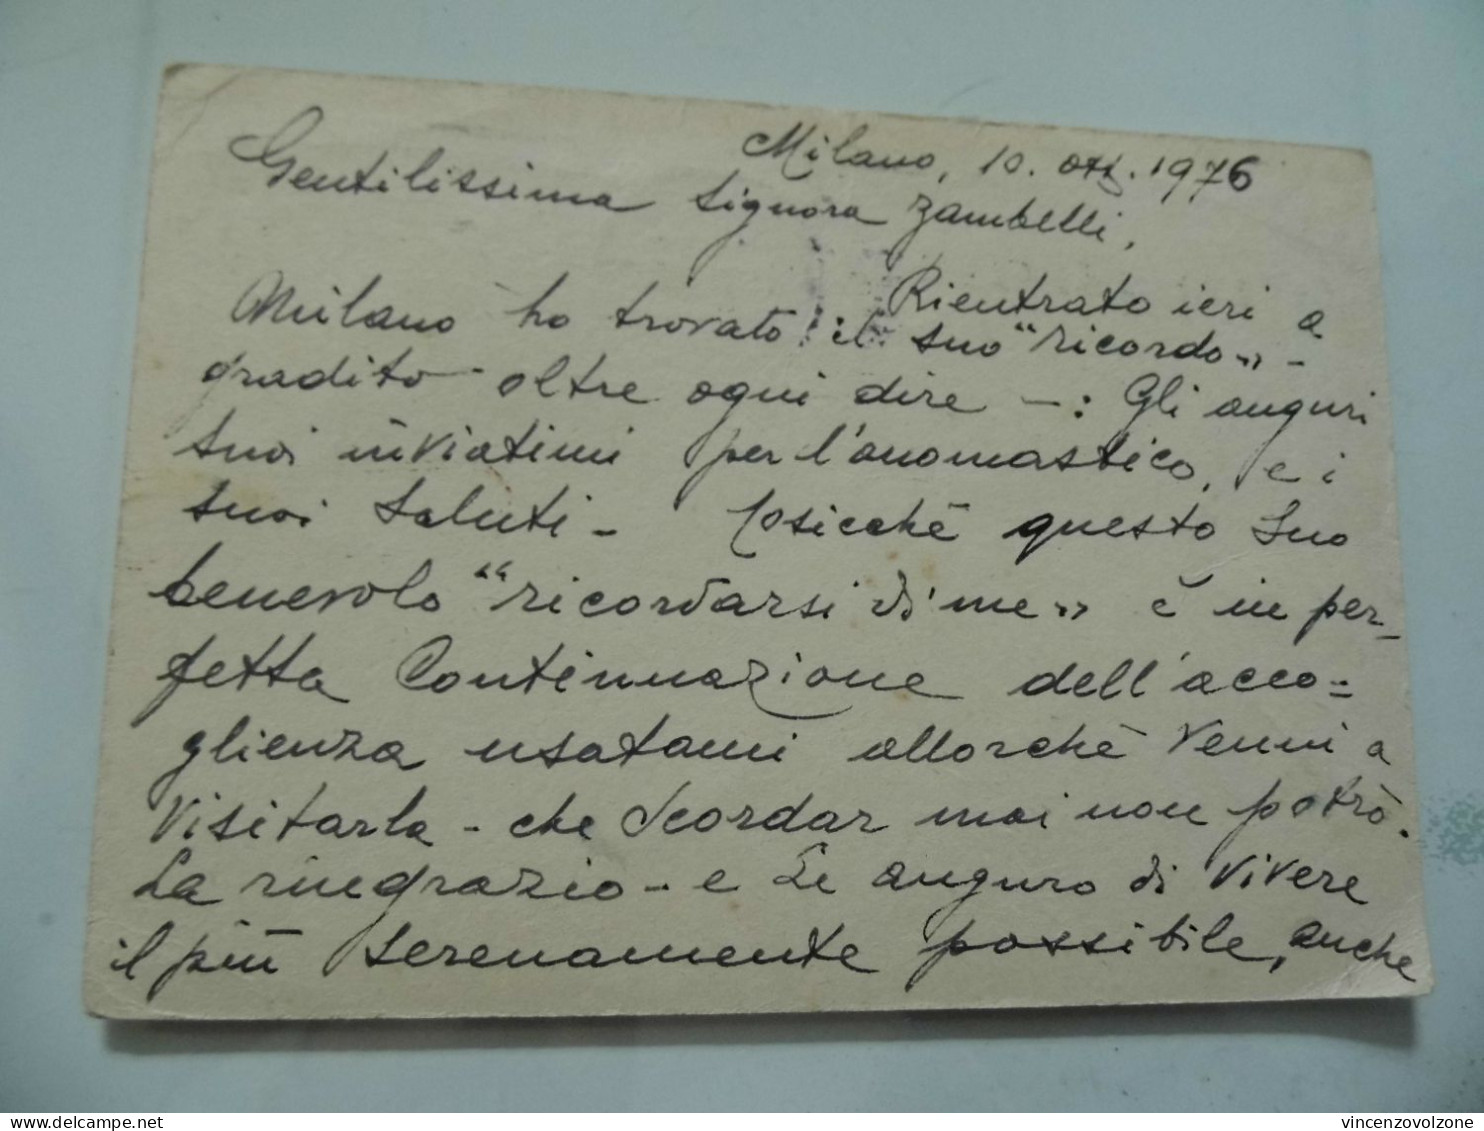 Milano, 10. ott. 1976
Gentilissima Signora Zambelli,
Rientrato ieri a
Milano ho trovato il suo "ricordo" -
gradito oltre ogni dire -: Gli auguri
suoi inviatimi per l'onomastico, e i
suoi saluti - Cosicchè questo Suo
benevolo "ricordarsi di me" è in per-
fetta Continuazione dell'acco=
glienza usatami allorchè Venni a
Visitarla - che Scordar mai non potrò.
La ringrazio - e Le auguro di Vivere
il più serenamente possibile, anche
vincenzovolzone